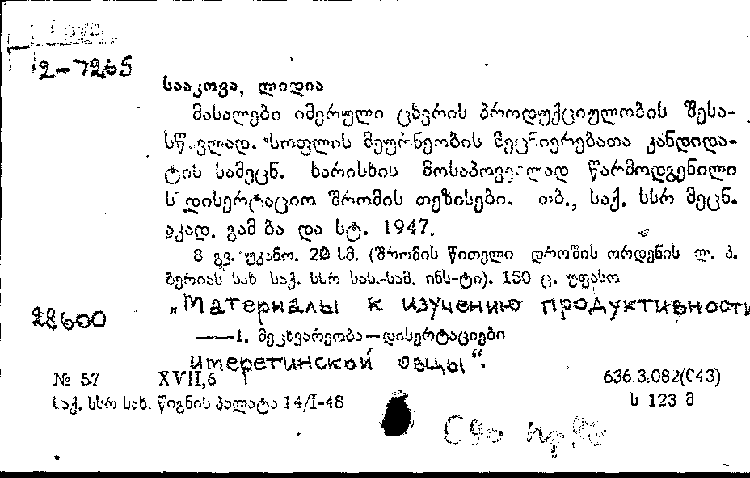 12-7265
სააკოვა, ლიდია
მასალები იმერული ცხვრის პროდუქციულობის შესა-
სწავლად. სოფლის მეურნეობის მეცნიერებათა კანდიდა-
ტის სამეცნ. ხარისხის მოსაპოვებლად წარმოდგენილი
სადისერტაციო შრომის თეზისები. თბ., საქ. სსრ მეცნ.
აკად. გამ-ბა და სტ. 1947.
8 გვ. უკანო. 20 სმ. (შრომის წითელი დროშის ორდენის ლ. პ.
ბერიას სახ. საქ. სსრ სას.-სამ. ინს-ტი). 150 ც. უფასო
„Материалы к изучению продуктивности
28600
—1. მეცხვარეობა—დისერტაციები
имеретинской овцы“.
№ 57 XVII,6 636.3.082(043)
საქ. სსრ სახ. წიგნის პალატა 14/I-48 ს 123 მ